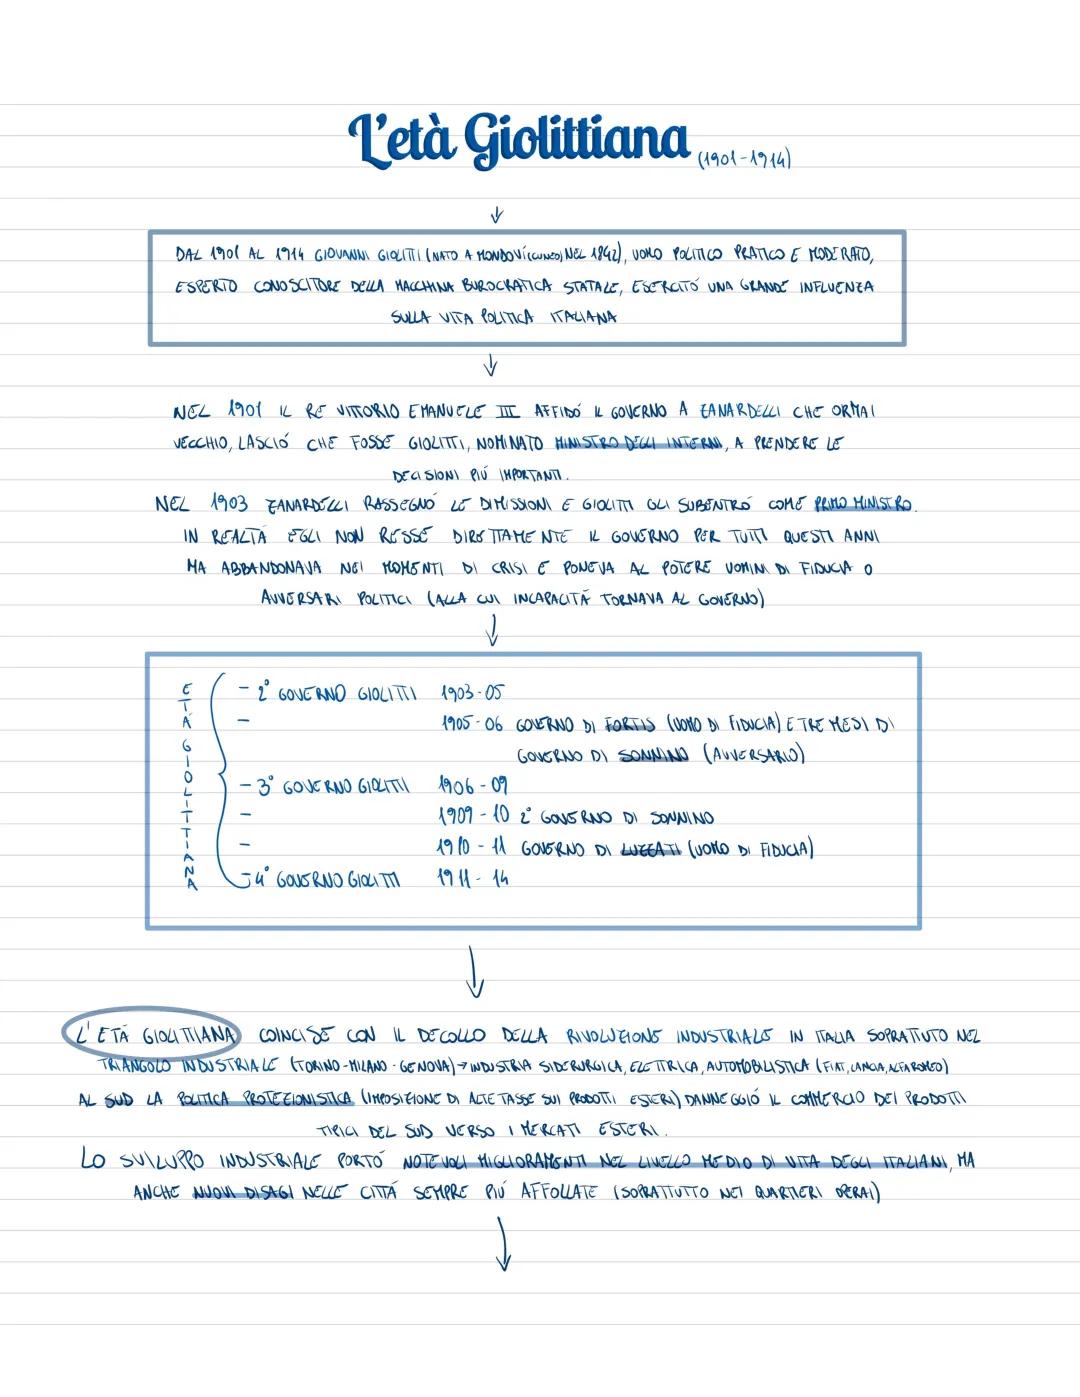 L'età Giolittiana (1901-1914)
DAL 1901 AL 1914 GIOVANNI GIOLITTI (NATO A MONDOVÍ (CUNEO) NEL 1842), UOMO POLITICO PRATICO E MODERATO,
ESPERTO CONOSCITORE DELLA MACCHINA BUROCRATICA STATALE, ESERCITÓ UNA GRANDE INFLUENZA
SULLA VITA POLITICA ITALIANA
NEL 1901 IL RE VITTORIO EMANUELE III AFFIDÓ IL GOVERNO A ZANARDELLI CHE ORMAI
VECCHIO, LASCIÓ CHE FOSSE GIOLITTI, NOMINATO MINISTRO DEGLI INTERNI, A PRENDERE LE
DECISIONI PIÚ IMPORTANTI.
NEL 1903 ZANARDELLI RASSEGNÓ LE DIMISSIONI E GIOLITTI GLI SUBENTRÓ COME PRIMO MINISTRO.
IN REALTÁ EGLI NON RESSE DIRETTAMENTE IL GOVERNO PER TUTTI QUESTI ANNI
MA ABBANDONAVA NEI MOMENTI DI CRISI E PONEVA AL POTERE UOMINI DI FIDUCIA O
AVVERSARI POLITICI (ALLA CUI INCAPACITÁ TORNAVA AL GOVERNO)
ETÁ GIOLITTIANA
- 2° GOVERNO GIOLITTI 1903-05
- 1905-06 GOVERNO DI FORTIS (UOMO DI FIDUCIA) E TRE MESI DI
GOVERNO DI SONNINO (AVVERSARIO)
- 3° GOVERNO GIOLITTI 1906-09
- 1909-10 2° GOVERNO DI SONNINO
- 1910-11 GOVERNO DI LUZZATI (UOMO DI FIDUCIA)
- 4° GOVERNO GIOLITTI 1911-14
L'ETÁ GIOLITTIANA COINCISE CON IL DECOLLO DELLA RIVOLUZIONE INDUSTRIALE IN ITALIA SOPRATTUTO NEL
TRIANGOLO INDUSTRIALE (TORINO-MILANO-GENOVA) → INDUSTRIA SIDERURGICA, ELETTRICA, AUTOMOBILISTICA (FIAT, LANCIA, ALFA ROMEO)
AL SUD LA POLITICA PROTEZIONISTICA (IMPOSIZIONE DI ALTE TASSE SUI PRODOTTI ESTERI) DANNEGGIÓ IL COMMERCIO DEI PRODOTTI
TIPICI DEL SUD VERSO I MERCATI ESTERI.
LO SVILUPPO INDUSTRIALE PORTÓ NOTEVOLI MIGLIORAMENTI NEL LIVELLO MEDIO DI VITA DEGLI ITALIANI, MA
ANCHE NUOVI DISAGI NELLE CITTÁ SEMPRE PIÚ AFFOLLATE (SOPRATTUTTO NEI QUARTIERI OPERAI)